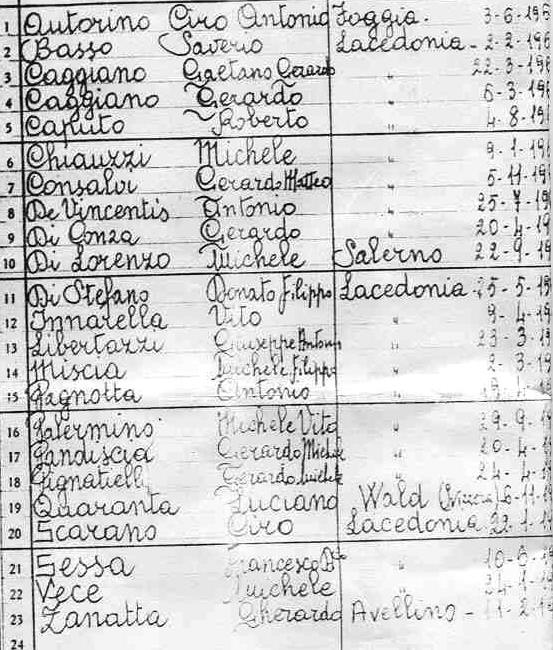 1 Autorino Ciro Antonio Foggia. 3-6-196
2 Basso Saverio Lacedonia - 2-2-196
3 Caggiano Gaetano Gerardo " 22-3-196
4 Caggiano Gerardo " 6-3-196
5 Caputo Roberto " 4-8-19
6 Chiauzzi Michele " 9-1-19
7 Consalvi Gerardo Matteo " 5-11-19
8 De Vincentis Antonio " 25-7-19
9 Di Conza Gerardo " 20-4-19
10 Di Lorenzo Michele Salerno 22-9-19
11 Di Stefano Donato Filippo Lacedonia 25-5-19
12 Innarella Vito " 9-4-19
13 Libertazzi Giuseppe Antonio " 23-3-19
14 Miscia Michele Filippo "
15 Pagnotta Antonio "
16 Palermino Michele Vito " 29-9-1
17 Pandiscia Gerardo Michele " 20-4-1
18 Pignatiell Gerardo Michele " 24-4-
19 Quaranta Luciano Wald (Svizzera) 6-11-1
20 Scarano Ciro Lacedonia 22-1-1
21 Sessa Francesco " 10-6-1
22 Vece Michele " 24-1-1
23 Zanatta Gherardo Avellino - 11-2-1
24